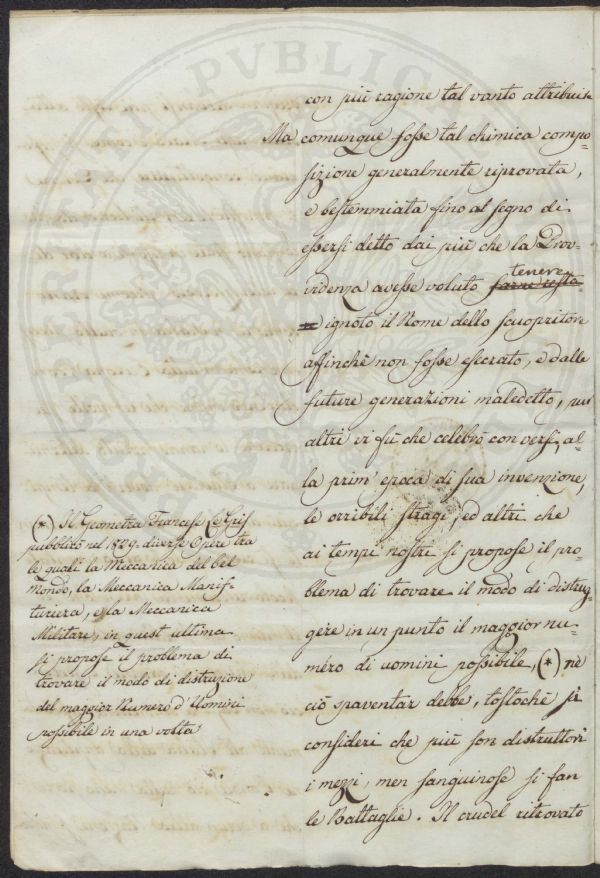 con più ragione tal vanto attribuire
Ma comunque fosse tal chimica compo=
sizione generalmente riprovata,
e bestemmiata fino al segno di
essersi detto dai più che la Prov=
videnza avesse voluto farne resta= tenere
re ignoto il Nome dello scuopritore
affinchè non fosse esecrato, e dalle
future generazioni maledetto, pur
altri vi fù che celebrò con versi, al=
la prim' epoca di sua invenzione,
le orribili stragi, ed altri che
ai tempi nostri si propose il pro=
blema di trovare il modo di distrug=
gere in un punto il maggior nu=
méro di uomini possibile, (*) nè
ciò spaventar debbe, tostochè si
consideri che più son distruttori
i mezzi, men sanguinose si fan
le Battaglie. Il crudel ritrovato
(*) Il Geometra Francese
pubblicò nel 1829. diverse Opere tra
le quali la Meccanica del bel
Mondo, la Meccanica Manif-
turiera, e la Meccanica
Militare, in quest ultima
si propose il problema di
trovare il modo di distruzione
del maggior Numero d'Uomini
possibile in una volta
PVBLICI